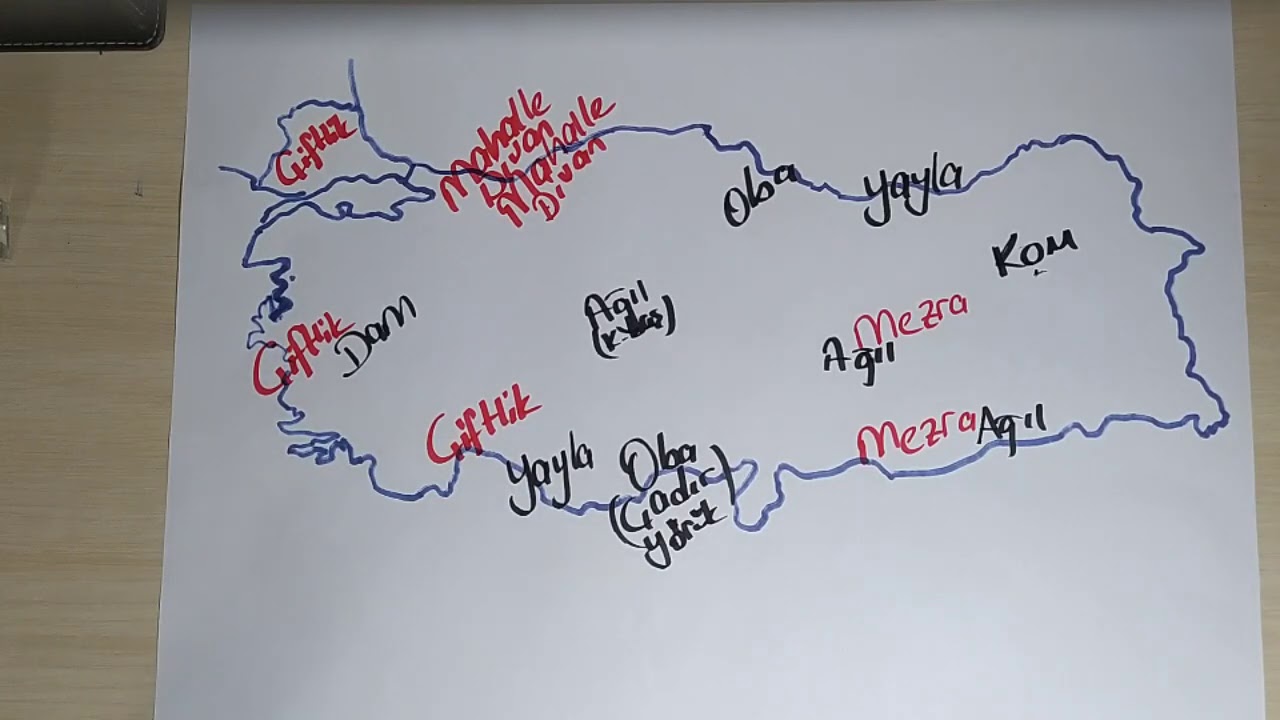 Çiftlik
Mahalle
Divan
Mahalle
Divan
Oba
Yayla
Kom
Çiftlik
Dam
Ağıl
(Kışlas)
Mezra
Ağıl
Çiftlik
Yayla
Oba
(Çadır
Yörük)
Mezra
Ağıl